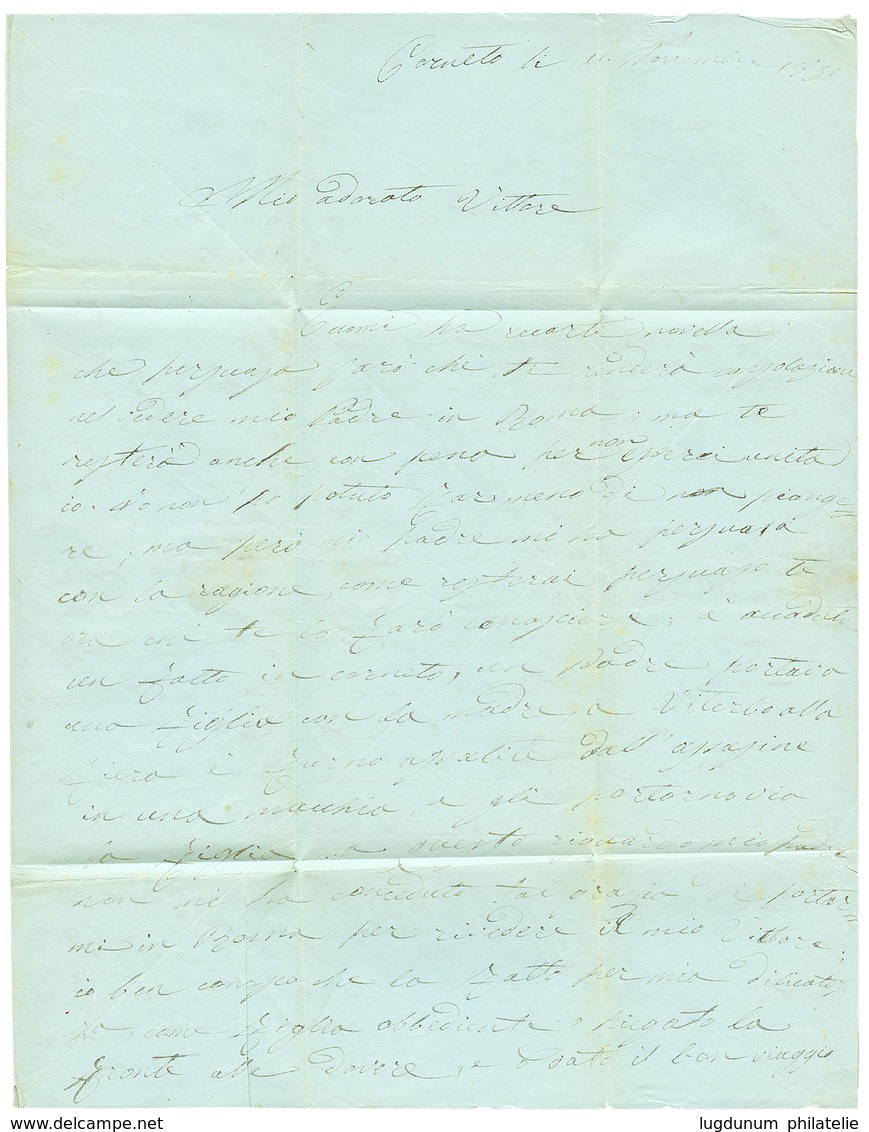 Corneto li 11 Novembre 1850
Mio adorato Vittore
Eccomi ha recarti novella
che persuasa sarò che te renderà consolazione
nel vedere mio Padre in Roma, ma te
resterà anche con pena per non esserci unita
io. Io non ho potuto far meno di non piange=
re, ma però mio Padre mi ha persuasa
con la ragione, come resterai persuaso te
ora che te lo farò conoscere: è accaduto
un fatto in corneto, un Padre portava
una figlia con la madre a Viterbo alla
fiera e furno assalite dall'assasine
in una macchia, e gli portorno via
la figlia, a questo riguardo mio Padre
non mi ha conceduto tal grazia di portar=
mi in Roma per rivedere il mio Vittore,
io ben conosco che la fatto per mia dilicatez
za, come figlia obbediente o piegato la
fronte alle dovere, e o dato il bon viaggio
www.delcampe.net
lugdunum philatelie